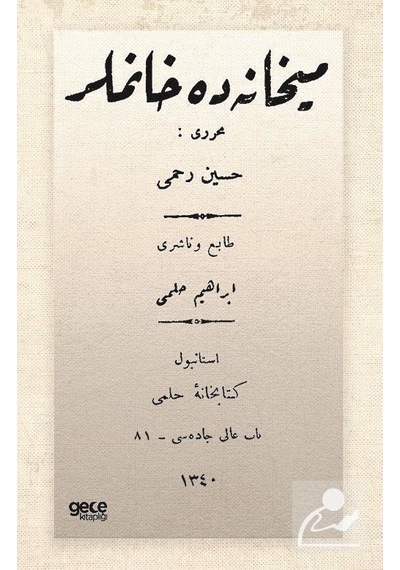 میخانه‌ده خانملر
محرری :
حسین رحمی
طابع و ناشری
ابراهیم حلمی
استانبول
كتابخانهٔ حلمی
باب عالی جاده‌سی - ٨١
١٣٤٠
gece
kitaplığı